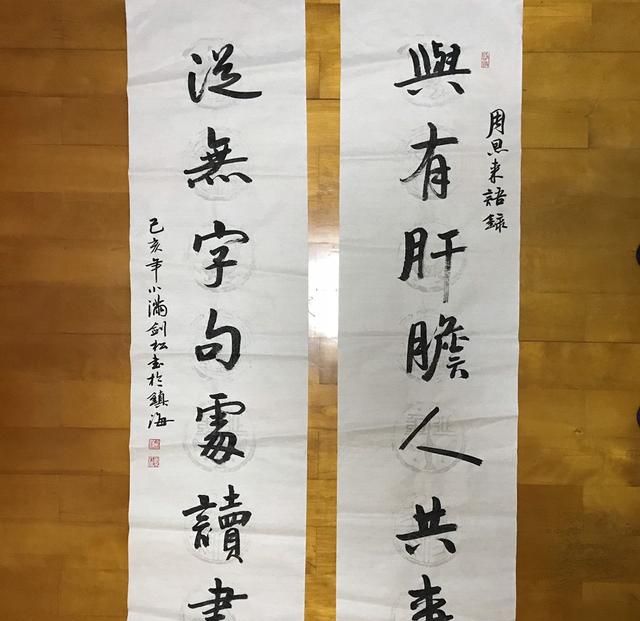 周恩来語録
與有肝膽人共事
從無字句處讀書
己亥年小滿劍松书於鎮海